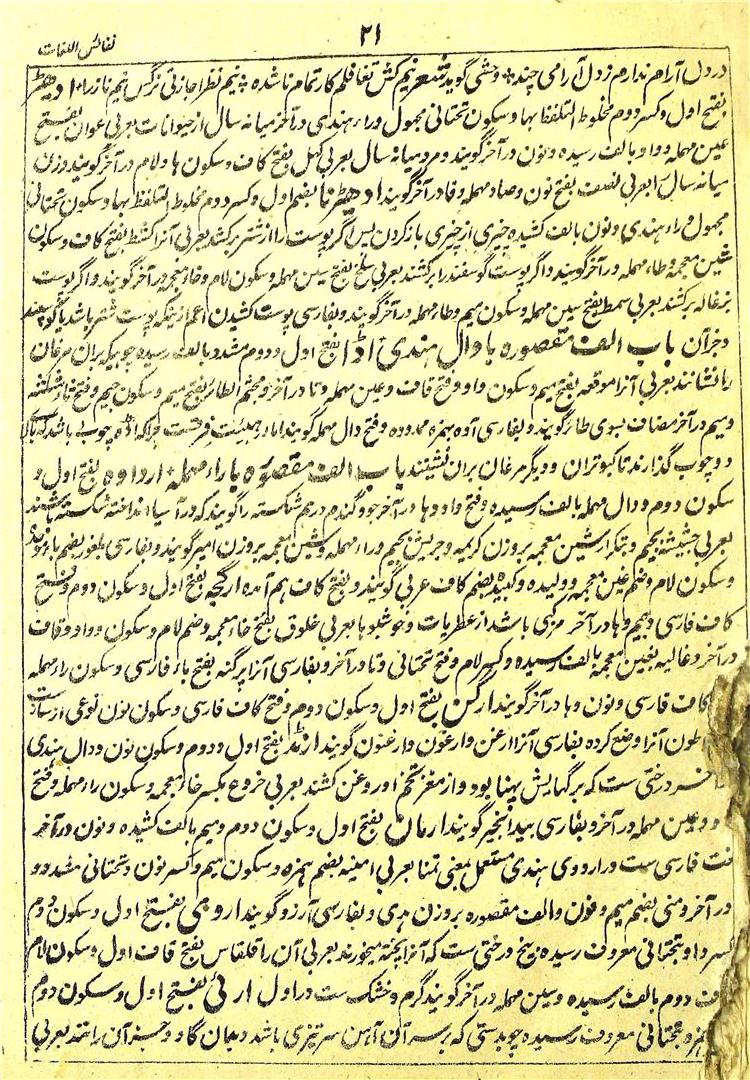 ۲۱
نفائس اللغات
در دل آرام ندارم ز دل آرامی چند وحشی گوید شعر نیم کش تغافلم کار تمام ناشده نیم نظر اجازتی نرگس نیم ناز را ادهیڑ
بفتح اول و کسر دوم مخلوط التلفظ بها و سکون تحتانی مجهول و راء هندی در آخر میانه سال از حیوانات بعربی عوان بفتح
عین مهمله و واو بالف رسیده و نون در آخر گویند و مرد میانه سال بعربی کهل بفتح کاف و سکون ها و لام در آخر گویند و زن
میانه سال را بعربی نصف بفتح نون و صاد مهمله و فا در آخر گویند ادهیڑنا بضم اول و کسر دوم مخلوط التلفظ بها و سکون تحتانی
مجهول و راء هندی و نون بالف کشیده چیزی از چیزی باز کردن پس اگر پوست را از شتر برکشد بعربی آنرا کشط بفتح کاف و سکون
شین معجمه و طاء مهمله در آخر گویند و اگر پوست گوسفند را برکشند بعربی سلخ بفتح سین مهمله و سکون لام و خاء معجمه در آخر گویند و اگر پوست
بزغاله برکشند بعربی سمط بفتح سین مهمله و سکون میم و طاء مهمله در آخر گویند و بفارسی پوست کشیدن اعم از اینکه پوست شتر باشد یا گوسفند
و جز آن باب الف مقصوره با دال هندی اڈا بفتح اول و دوم مشدد بالف رسیده چوبیکه بران مرغان
را نشانند بعربی آنرا موقعه بفتح میم و سکون واو و فتح قاف و عین مهمله و تا در آخر و مجثم الطائر بفتح میم و سکون جیم و فتح ثا مثلثه
و میم در آخر مضاف بسوی طائر گویند و بفارسی آده بهمزه ممدوده و فتح دال مهمله گویند اما در هیئت فرقست چرا که اڈه چوبی باشد که بالای
دو چوب گذارند تا کبوتران و دیگر مرغان بران نشینند باب الف مقصوره با راء مهمله ارداوه بفتح اول و
سکون دوم و دال مهمله بالف رسیده و فتح واو و ها در آخر جو و گندم درهم شکسته را گویند که در آسیا انداخته شکسته باشند
بعربی جشیشه بجیم و بتکرار شین معجمه بر وزن کریمه و جریش بجیم و راء مهمله و شین معجمه بر وزن امیر گویند و بفارسی بلغور بضم باء موحده
و سکون لام و ضم غین معجمه و ولیده و کبیده بضم کاف عربی گویند و بفتح کاف هم آمده ارگجه بفتح اول و سکون دوم و فتح
کاف فارسی و جیم و ها در آخر مرکبی باشد از عطریات و خوشبوها بعربی خلوق بفتح خاء معجمه و ضم لام و سکون واو و قاف
در آخر و غالیه بغین معجمه بالف رسیده و کسر لام و فتح تحتانی و تا در آخر و بفارسی آنرا پرگنه بفتح باء فارسی و سکون راء مهمله
کاف فارسی و نون و ها در آخر گویند ارگن بفتح اول و سکون دوم و فتح کاف فارسی و سکون نون نوعی از ساز است
طون آنرا وضع کرده بفارسی آنرا ارغن و ارغون و ارغنون گویند ارنڈ بفتح اول و دوم و سکون نون و دال هندی
در آخر درختی ست که برگهایش پهنا بود و از مغز تخم او روغن کشند بعربی خروع بکسر خاء معجمه و سکون راء مهمله و فتح
و عین مهمله در آخر و بفارسی بیدانجیر گویند ارمان بفتح اول و سکون دوم و میم بالف کشیده و نون در آخر
لغت فارسی ست و در اردوی هندی مستعمل بمعنی تمنا بعربی امنیه بضم همزه و سکون میم و کسر نون و تحتانی مشدد و
در آخر و منی بضم میم و نون و الف مقصوره بر وزن هدی و بفارسی آرزو گویند اروی بفتح اول و سکون دوم
کسر واو و تحتانی معروف رسیده بیخ درختی ست که آنرا پخته میخورند بعربی آن را قلقاس بفتح قاف اول و سکون لام
و قاف دوم بالف رسیده و سین مهمله در آخر گویند گرم و خشک ست در اول ارئی بفتح اول و سکون دوم
همزه و تحتانی معروف رسیده چوبدستی که بر سر آن آهن سر تیزی باشد و بدان گاو و جز آن رانند بعربی